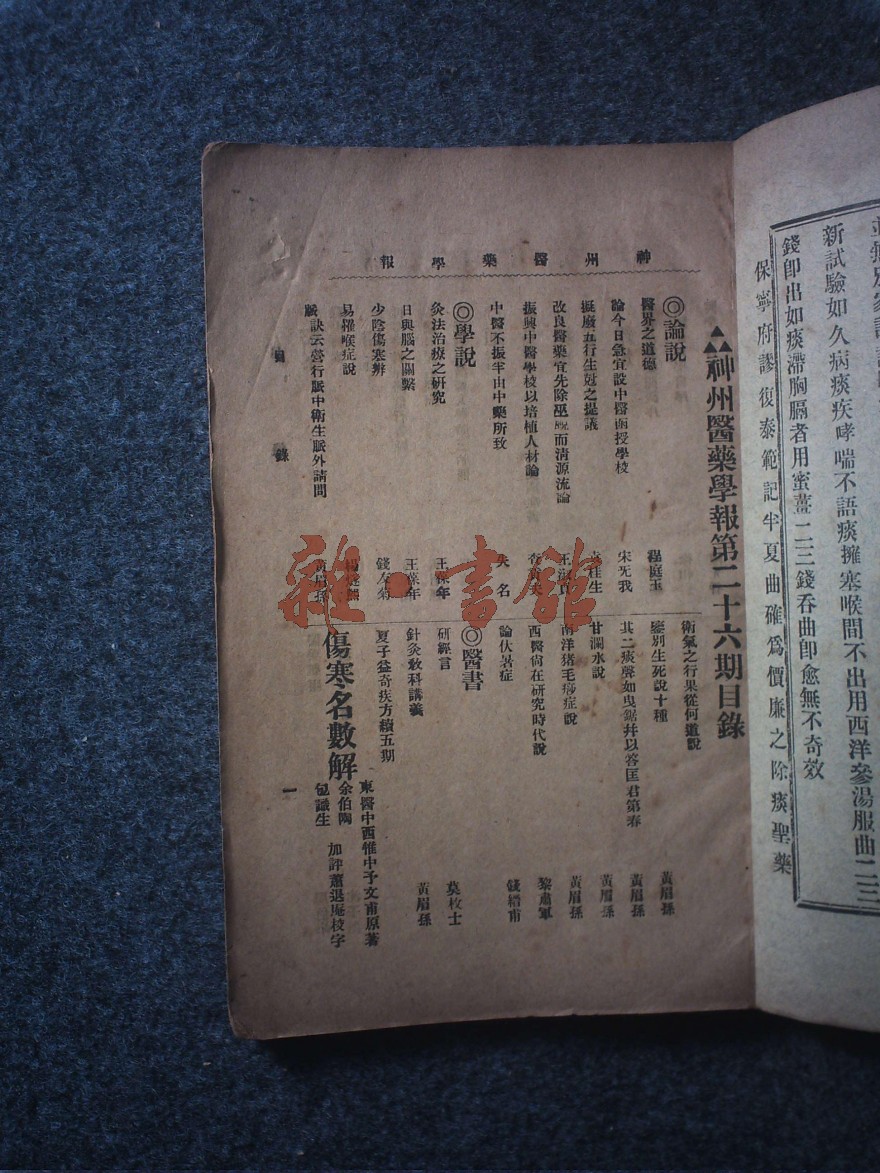 並
新試驗如久病痰疾哮喘不語痰擁塞喉間不出用西洋參湯服曲二三
錢卽出如痰滯胸膈者用蜜薑二三錢吞曲卽愈無不奇效
保寧府謬復泰範記半夏曲確爲價廉之除痰聖藥
神州醫藥學報
神州醫藥學報第二十六期目錄
◎論說
醫界之道德 程庭玉
論今日急宜設中醫函授學校 宋旡我
挺廢五行生尅之提議 袁桂生
改良醫藥宜先除巫覡而清源流論 王淑貞
振興中醫學校以培植人材論
中醫不振半由中藥所致 失名
◎學說
灸法治療之研究 王葆年
日與腦之關繫 王葆年
少陰傷寒辨 錢存菊
易罹喉症說
脈訣云營行脈中衛生脈外請問
衛氣之行果從何道說 黃眉孫
鑒別生死說十種 黃眉孫
其二痰聲如曳鋸幷以答匡君第春 黃眉孫
甘瀾水說 黃眉孫
南洋猪毛痧症說 黃眉孫
西醫尙在研究時代說 黎肅軍
論伏暑症 錢縉甫
◎醫書
研經言 莫枚士
針灸敎科講義 黃眉孫
夏子益奇疾方續五期
傷寒名數解
東醫中西惟中子文甫原著
余伯陶
包識生
加評蕭退庵校字
目錄
一
雜·書館